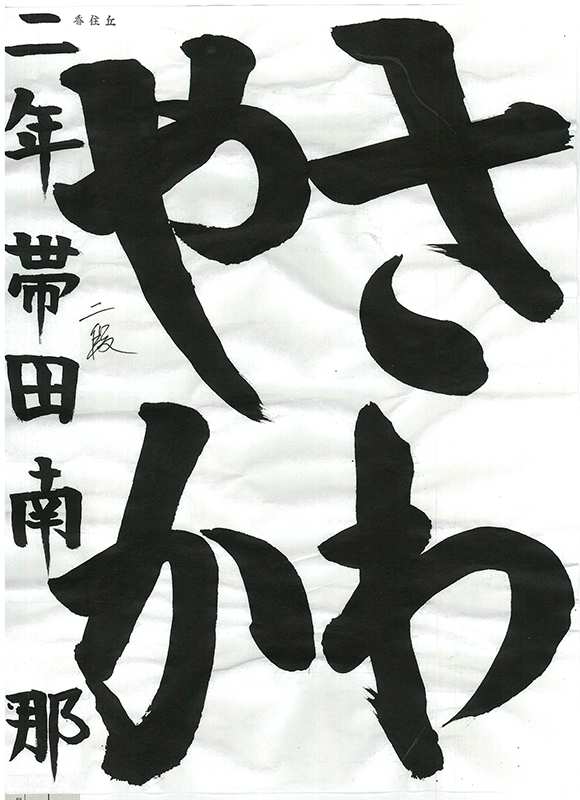 さわ
やか
二年 帯田南那
香住丘
二段